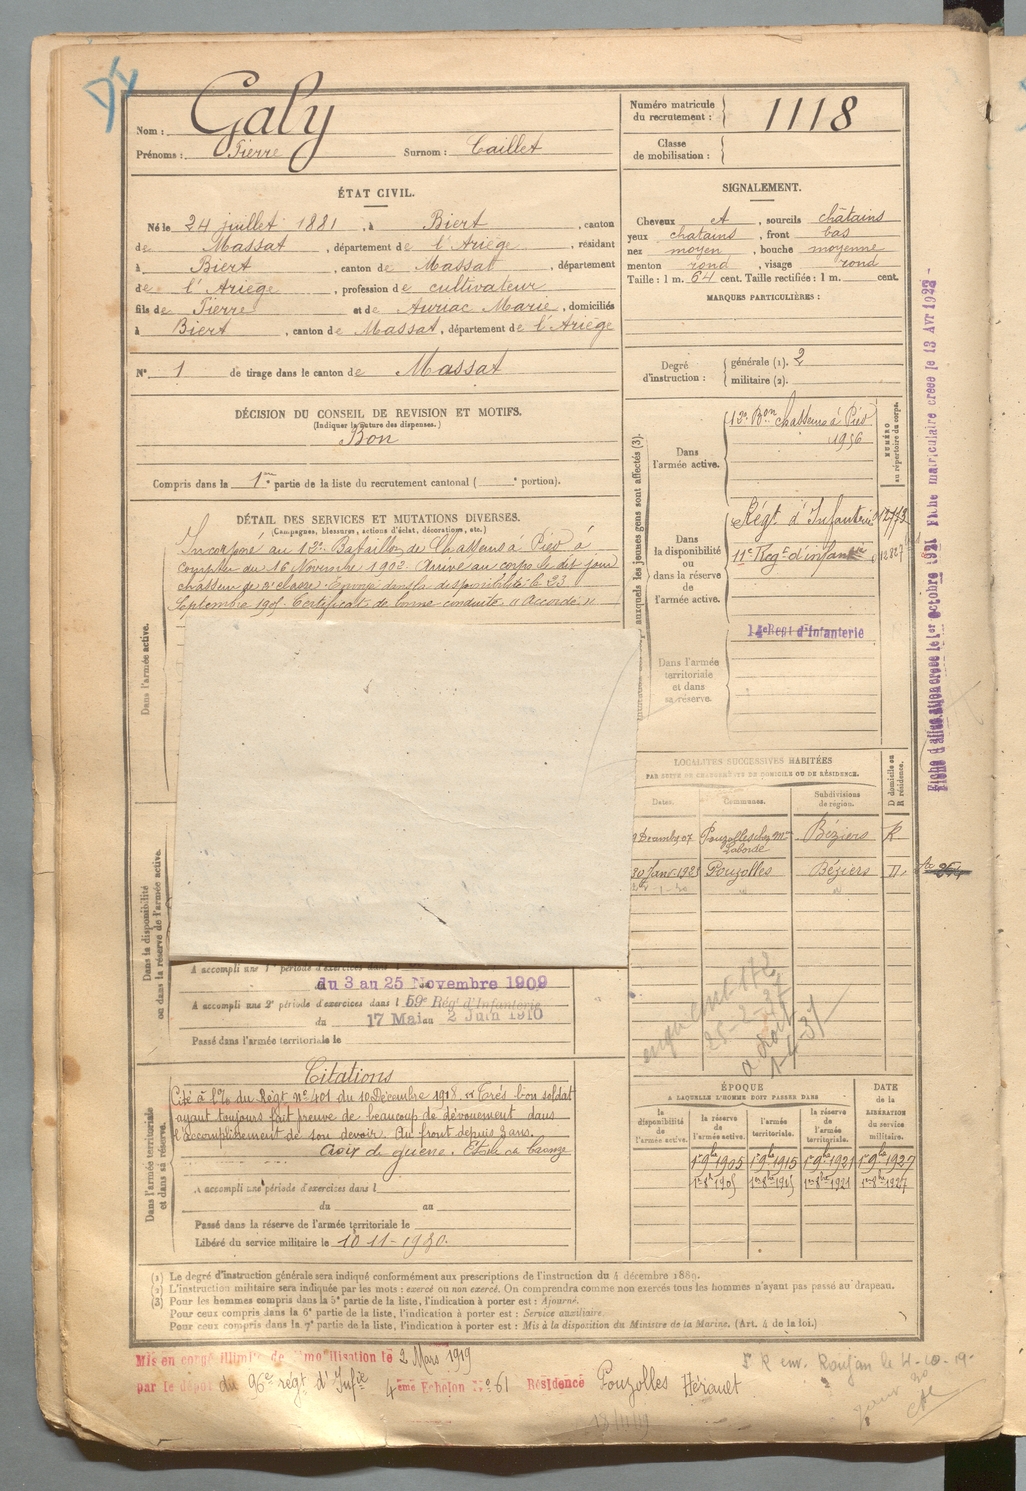 Nom : Galy
Prénoms : Pierre Surnom : Caillet
Numéro matricule du recrutement : 1118
Classe de mobilisation :
ÉTAT CIVIL.
Né le 24 juillet 1881, à Biert, canton
de Massat, département de l'Ariège, résidant
à Biert, canton de Massat, département
de l'Ariège, profession de cultivateur
fils de Pierre et de Auriac Marie, domiciliés
à Biert, canton de Massat, département de l'Ariège
N° 1 de tirage dans le canton de Massat
SIGNALEMENT.
Cheveux et, sourcils châtains
yeux chatains, front bas
nez moyen, bouche moyenne
menton rond, visage rond
Taille : 1 m. 64 cent. Taille rectifiée : 1 m. cent.
MARQUES PARTICULIÈRES :
Degré d'instruction : générale (1). 2
militaire (2).
DÉCISION DU CONSEIL DE REVISION ET MOTIFS.
(Indiquer la nature des dispenses.)
Bon
Compris dans la 1re partie de la liste du recrutement cantonal ( portion).
DÉTAIL DES SERVICES ET MUTATIONS DIVERSES.
(Campagnes, blessures, actions d'éclat, décorations, etc.)
Incorporé au 12e Bataillon de Chasseurs à Pied à
compter du 16 Novembre 1902. Arrivé au corps le dit jour
chasseur de 2e classe. Envoyé dans la disponibilité le 23
Septembre 1905. Certificat de bonne conduite "Accordé"
Dans l'armée active.
Dans la disponibilité ou dans la réserve de l'armée active.
A accompli une 1e période d'exercices dans l
du 3 au 25 Novembre 1909
A accompli une 2e période d'exercices dans l 59e Rég' d'Infanterie
du 17 Mai au 2 Juin 1910
Passé dans l'armée territoriale le
Dans l'armée territoriale et dans sa réserve.
Citations
Cité à l'O/ du Régt n° 401 du 10 Décembre 1918. Très bon soldat
ayant toujours fait preuve de beaucoup de dévouement dans
l'accomplissement de son devoir. Au front depuis 3 ans.
Croix de guerre. Etoile de bronze
A accompli une période d'exercices dans l
du au
Passé dans la réserve de l'armée territoriale le
Libéré du service militaire le 10-11-1930.
auxquels les jeunes gens sont affectés (3).
NUMÉRO au répertoire du corps.
Dans l'armée active.
12e Bon chasseurs à Pied
1956
Dans la disponibilité ou dans la réserve de l'armée active.
Régt d'Infanterie
11e Regt d'infanterie
Dans l'armée territoriale et dans sa réserve.
14e Regt d'Infanterie
LOCALITÉS SUCCESSIVES HABITÉES
PAR SUITE DE CHANGEMENTS DE DOMICILE OU DE RÉSIDENCE.
Dates. Communes. Subdivisions de région. D domicile ou R résidence.
9 Xcembre 07 Pouzolles chez Mme Laborde Béziers R
30 Janv 1923 Pouzolles Béziers D.
25-2-37
ÉPOQUE
A LAQUELLE L'HOMME DOIT PASSER DANS
la disponibilité de l'armée active. la réserve de l'armée active. l'armée territoriale. la réserve de l'armée territoriale. DATE de la LIBÉRATION du service militaire.
1er 9bre 1905 1er 9bre 1915 1er 9bre 1921 1er 9bre 1927
1er 8bre 1905 1er 8bre 1915 1er 8bre 1921 1er 8bre 1927
(1) Le degré d'instruction générale sera indiqué conformément aux prescriptions de l'instruction du 4 décembre 1889.
(2) L'instruction militaire sera indiquée par les mots : exercé ou non exercé. On comprendra comme non exercés tous les hommes n'ayant pas passé au drapeau.
(3) Pour les hommes compris dans la 5e partie de la liste, l'indication à porter est : Ajourné.
Pour ceux compris dans la 6e partie de la liste, l'indication à porter est : Service auxiliaire.
Pour ceux compris dans la 7e partie de la liste, l'indication à porter est : Mis à la disposition du Ministre de la Marine. (Art. 4 de la loi.)
Mis en congé illimité de démobilisation le 2 Mars 1919
par le dépôt du 96e régt d'Infie 4ème Echelon N° 61 Résidence Pouzolles Hérault
Roujan le 4-10-19
13/11/19
Fiche matriculaire créée le 13 Avr 1923